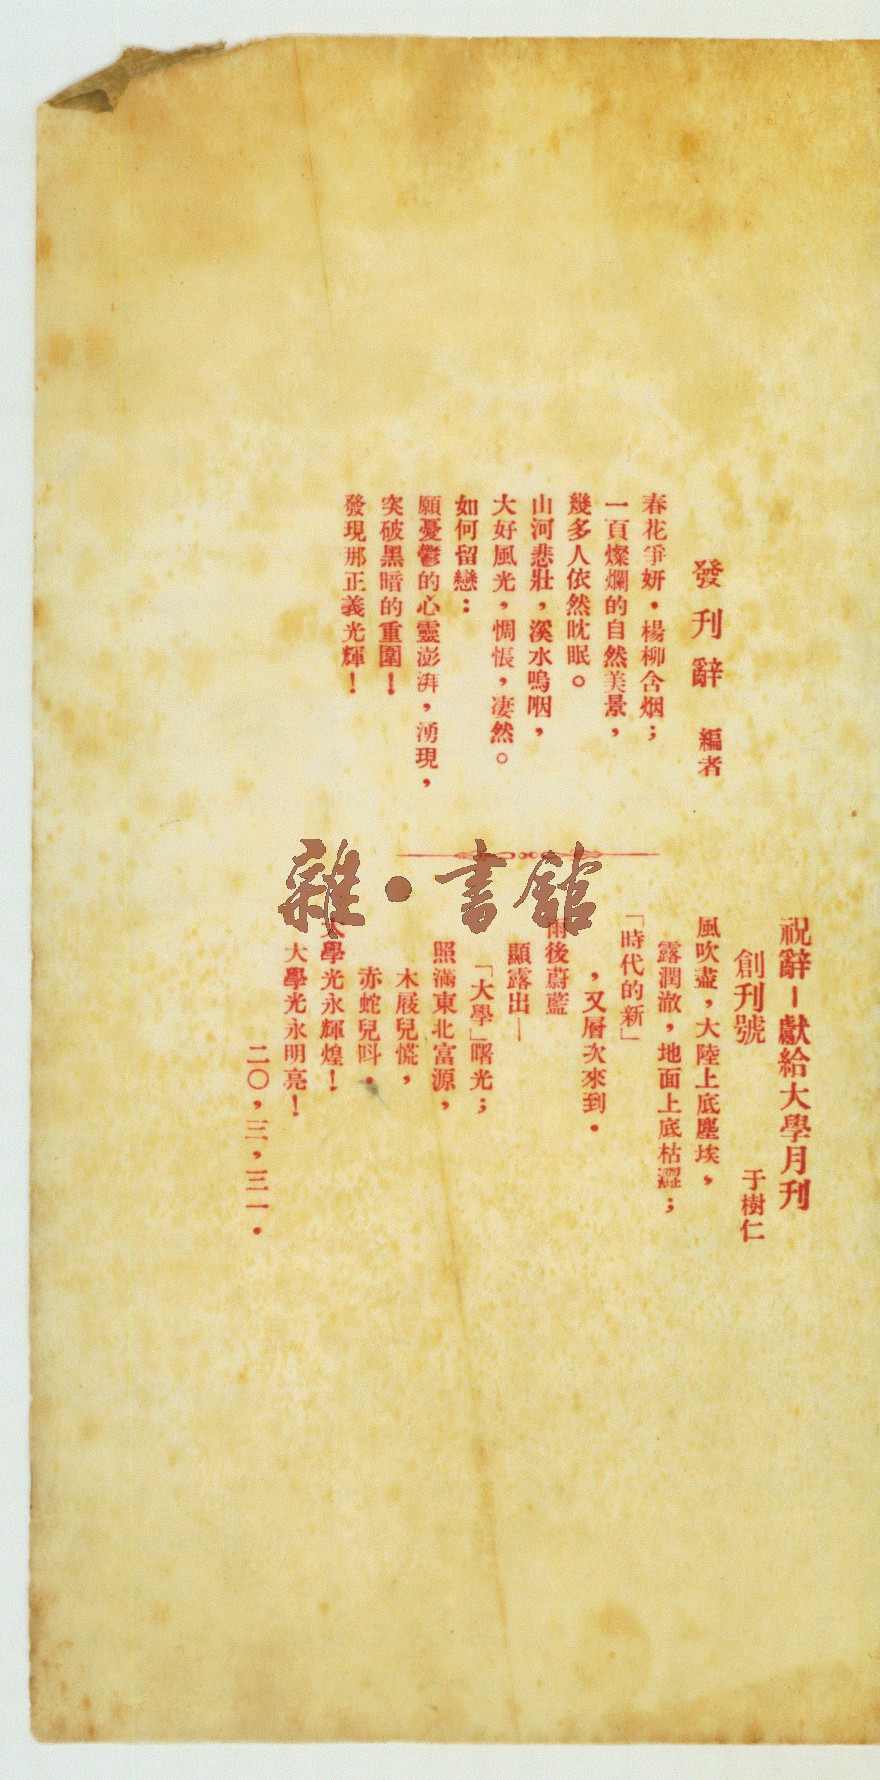 發刊辭 編者
春花爭妍·楊柳含烟；
一頁燦爛的自然美景，
幾多人依然眈眠。
山河悲壯，溪水嗚咽，
大好風光，惆悵，凄然。
如何留戀：
願憂鬱的心靈澎湃，湧現，
突破黑暗的重圍！
發現那正義光輝！
祝辭－獻給大學月刊
創刊號 于樹仁
風吹盡，大陸上底塵埃，
露潤澈，地面上底枯澀；
「時代的新」
，又層次來到·
雨後蔚藍
顯露出—
「大學」曙光；
照滿東北富源，
木屐兒慌，
赤蛇兒呌·
大學光永輝煌！
大學光永明亮！
二〇，三，三一·
雜·書館